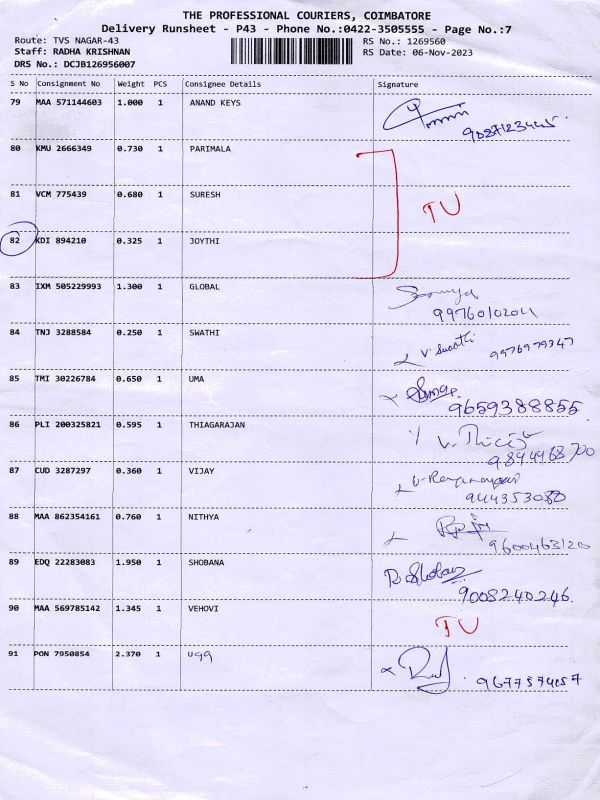 THE PROFESSIONAL COURIERS, COIMBATORE
Delivery Runsheet - P43 - Phone No.:0422-3505555 - Page No.:7
Route: TVS NAGAR-43 RS No.: 1269560
Staff: RADHA KRISHNAN RS Date: 06-Nov-2023
DRS No.: DCJB126956007
S No Consignment No Weight PCS Consignee Details Signature
79 MAA 571144603 1.000 1 ANAND KEYS
80 KMU 2666349 0.730 1 PARIMALA
81 VCM 775439 0.680 1 SURESH TU
82 KDI 894210 0.325 1 JOYTHI
83 IXM 505229993 1.300 1 GLOBAL
84 TNJ 3288584 0.250 1 SWATHI V. Swathi
9976979347
85 TMI 30226784 0.650 1 UMA
9659388855
86 PLI 200325821 0.595 1 THIAGARAJAN
9844468700
87 CUD 3287297 0.360 1 VIJAY
88 MAA 862354161 0.760 1 NITHYA
9600463120
89 EDQ 22283083 1.950 1 SHOBANA
9008240246
90 MAA 569785142 1.345 1 VEHOVI TU
91 PON 7950854 2.370 1